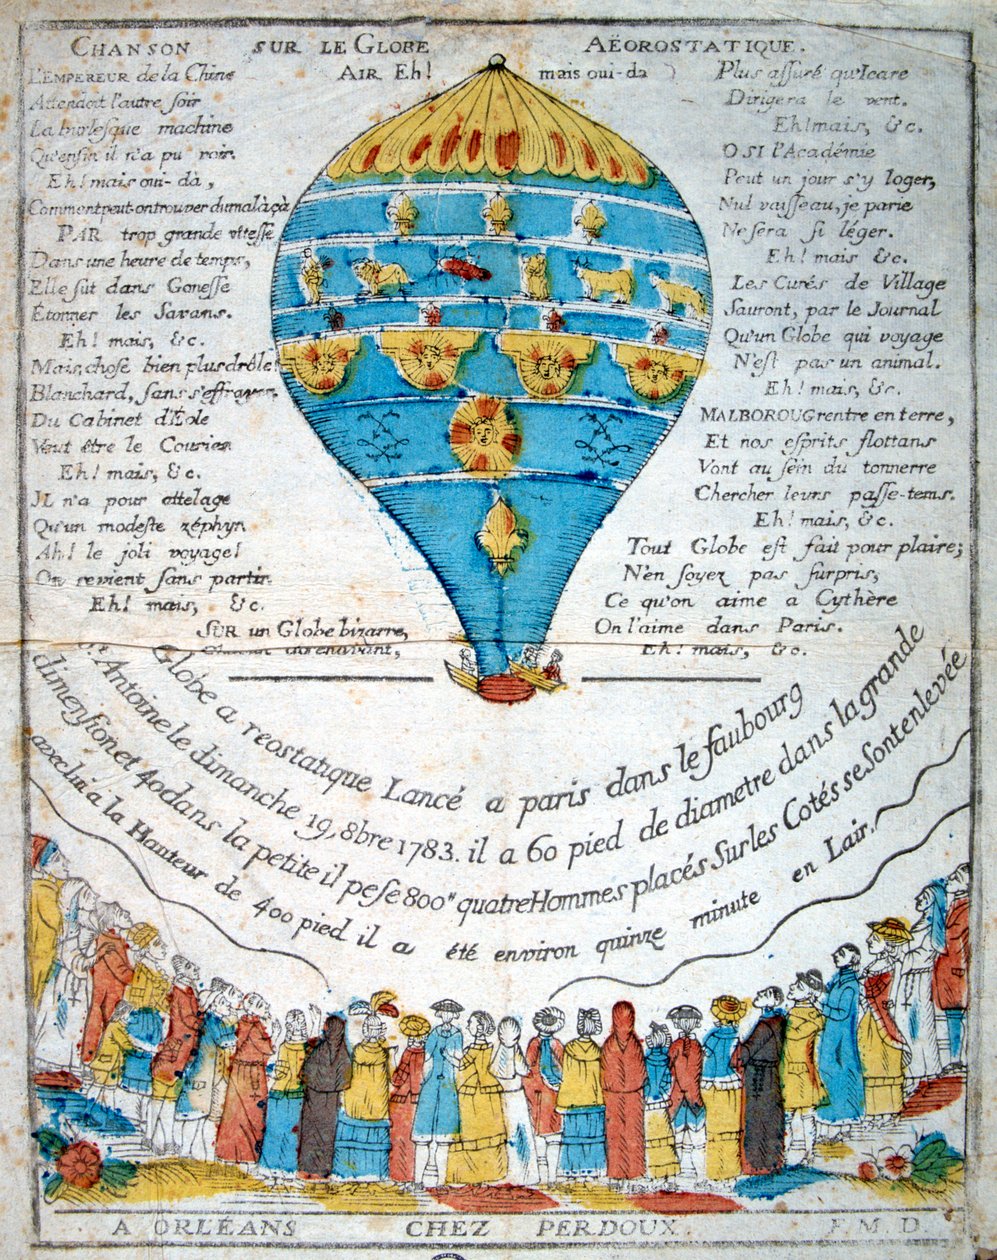 CHANSON SUR LE GLOBE AËOROSTATIQUE.
AIR Eh! mais oui-da
L'EMPEREUR de la Chine
Attendoit l'autre soir
La burlesque machine
Qu'enfin il n'a pu voir.
Eh! mais oui-dà,
Comment peut-on trouver du mal à çà
PAR trop grande vitesse
Dans une heure de temps,
Elle fût dans Gonesse
Étonner les Savans.
Eh! mais, &c.
Mais, chose bien plus drôle!
Blanchard, sans s'effrayer,
Du Cabinet d'Éole
Veut être le Courier
Eh! mais, &c.
IL n'a pour attelage
Qu'un modeste zéphyr
Ah! le joli voyage!
On revient sans partir.
Eh! mais, &c.
SUR un Globe bizarre,
Plus assuré qu'Icare
Dirigera le vent.
Eh! mais, &c.
O SI l'Académie
Peut un jour s'y loger,
Nul vaisseau, je parie
Ne sera si léger.
Eh! mais &c.
Les Curés de Village
Sauront, par le Journal
Qu'un Globe qui voyage
N'est pas un animal.
Eh! mais, &c.
MALBOROUG rentre en terre,
Et nos esprits flottans
Vont au sein du tonnerre
Chercher leurs passe-tems.
Eh! mais, &c.
Tout Globe est fait pour plaire;
N'en soyez pas surpris,
Ce qu'on aime a Cythère
On l'aime dans Paris.
Eh! mais, &c.
Globe a reostatique Lancé a paris dans le faubourg
s.t Antoine le dimanche 19, 8bre 1783. il a 60 pied de diametre dans la grande
dimension et 40 dans la petite il pese 800" quatre Hommes placés Sur les Cotés se Sont enlevée
a la Hauteur de 400 pied il a été environ quinze minute en Lair.
A ORLÉANS CHEZ PERDOUX. F. M. D.